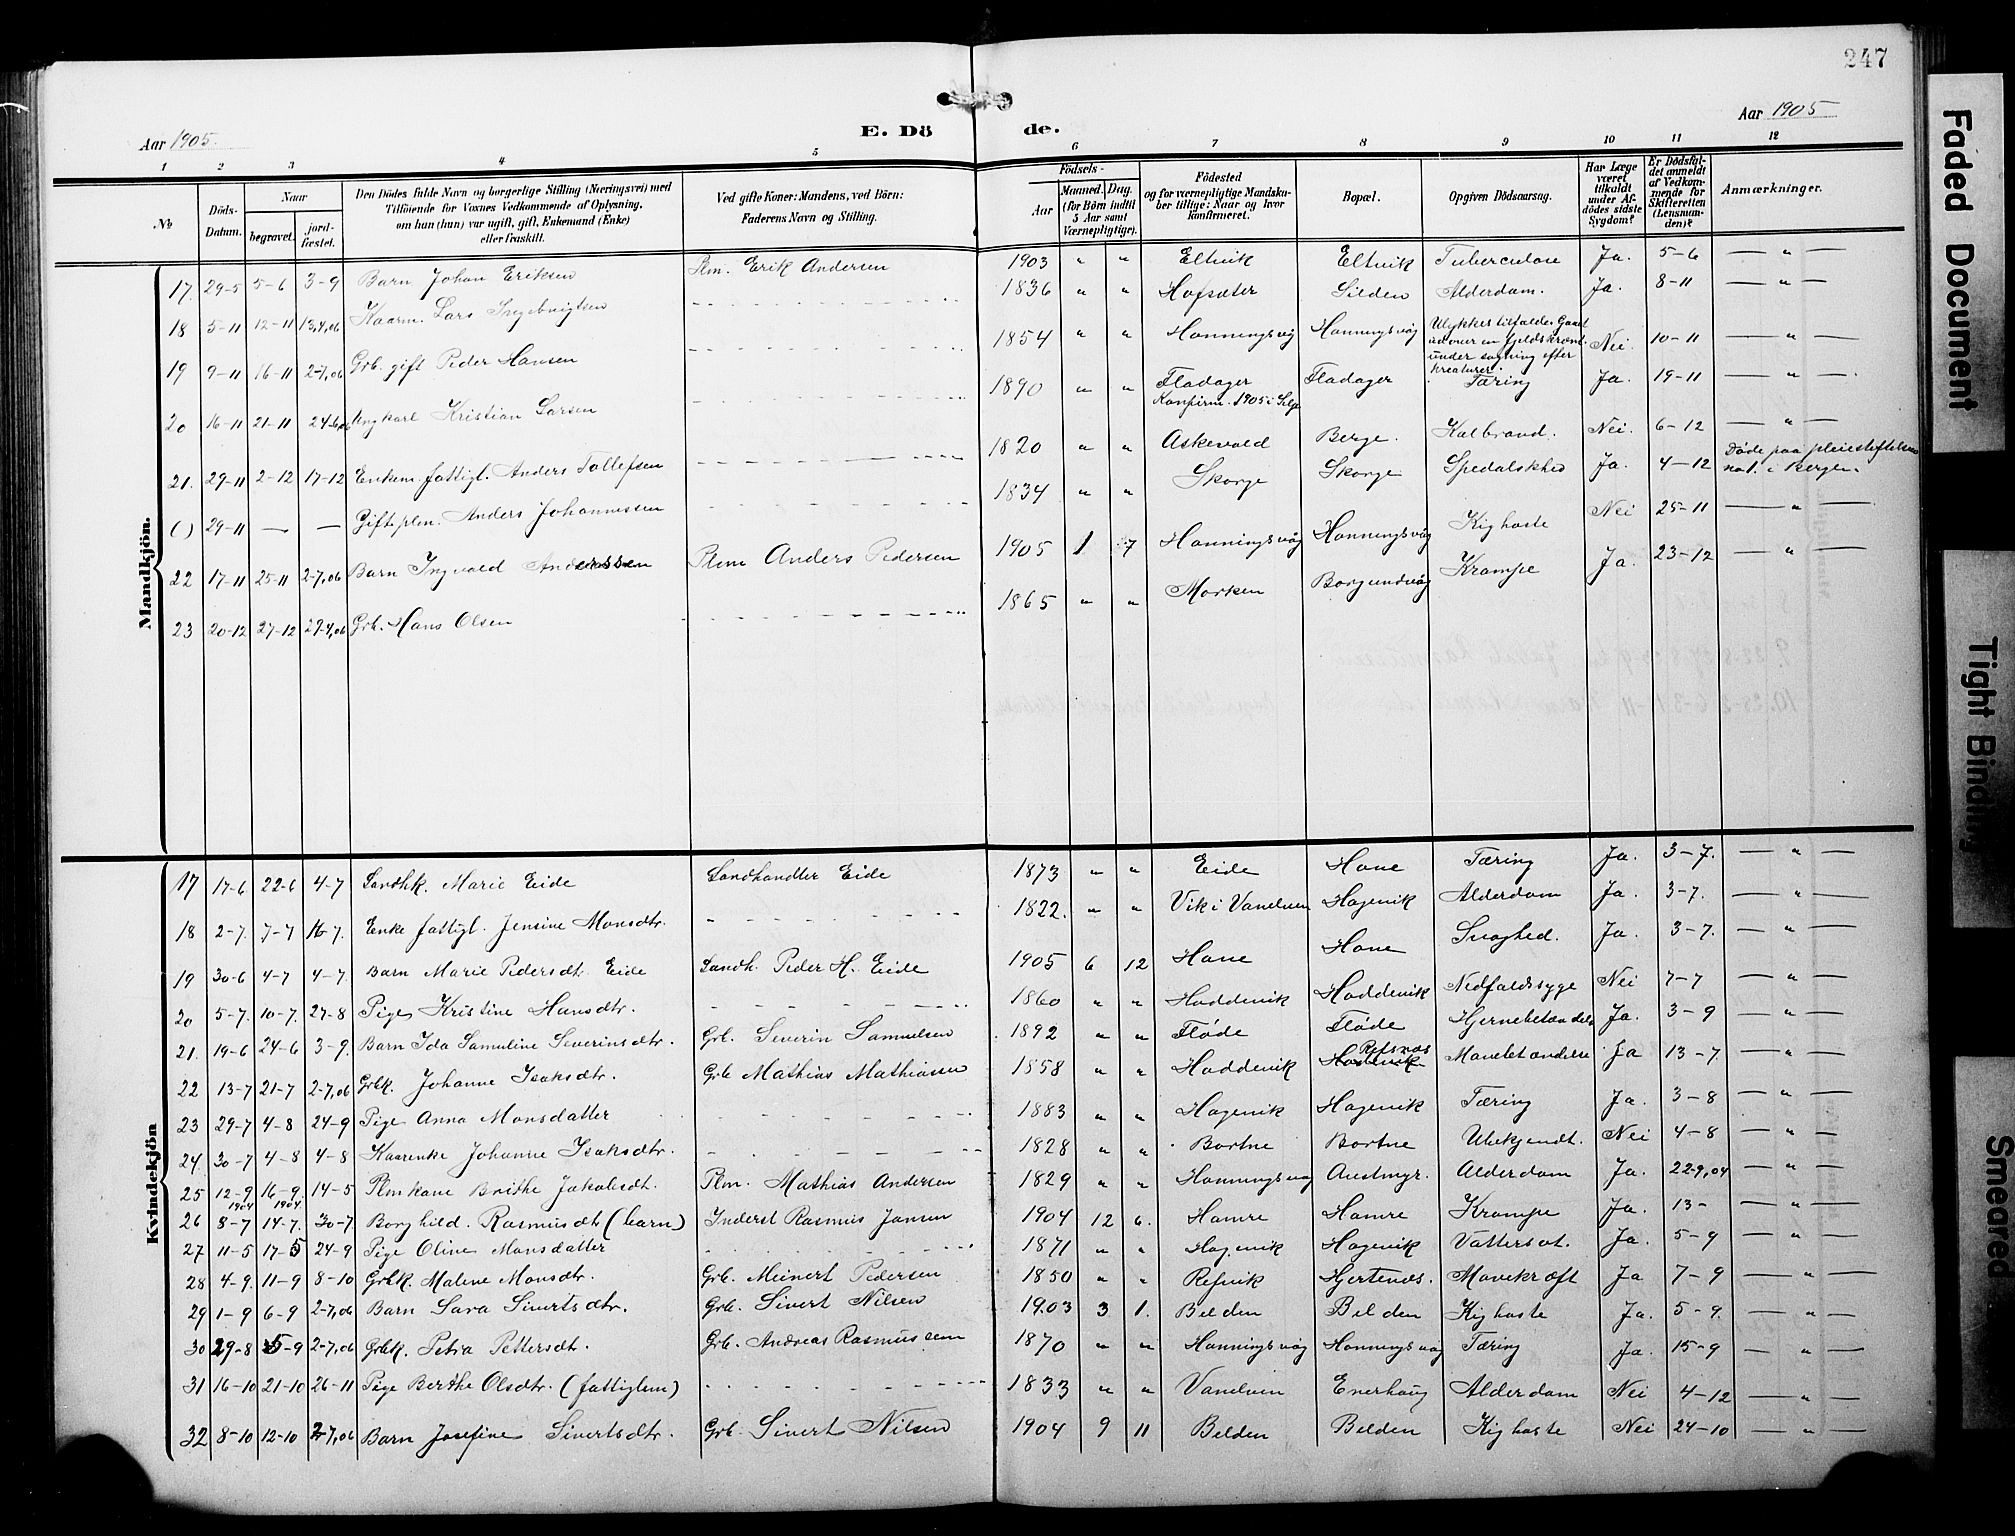 247
Aar 1905.
E. Dö
de.
Aar 1905
1 2 3 4 5 6 7 8 9 10 11 12
No
Döds-Datum.
Naar
begravet.
jord-fæstet.
Den Dödes fulde Navn og borgerlige Stilling (Næringsvei) med
Tilföiende for Voxnes Vedkommende af Oplysning,
om han (hun) var ugift, gift, Enkemand (Enke)
eller fraskilt.
Ved gifte Koner: Mandens, ved Börn:
Faderens Navn og Stilling.
Födsels-
Aar
Maaned. Dag.
(for Börn indtil
5 Aar samt
Værnepligtige).
Födested
og for værnepligtige Mandska-
ber tillige: Naar og hvor
konfirmeret.
Bopæl.
Opgiven Dödsaarsag.
Har Læge
været
tilkaldt
under Af-
dödes sidste
Sygdom?
Er Dödsfal-
det anmeldt
af Vedkom-
mende for
Skifteretten
(Lensman-
den)?
Anmærkninger.
Mandkjön.
17. 29-5 5-6 3-9 Barn Johan Eriksen Plm. Erik Andersen 1903 " " Eltvik Eltvik Tuberculose Ja. 5-6 — " —
18 5-11 12-11 13,4,06 Kaarm. Lars Ingebrigtsen 1836 " " Hofsæter Silden Alderdom. Ja. 8-11 — " —
19 9-11 16-11 2-7,06 Grb. gift Peder Hansen 1854 " " Honningsvåg Honningsvåg Ulykkestilfælde. Gaaet
udover en fjeldskrænt
under søgning efter
kreaturer. Nei. 10-11 — " —
20 16-11 21-11 24-6,06 Ungkarl Kristian Larsen 1890 " " Fladager
Konfirm. 1905 i Selje Fladager Tæring Ja. 19-11 — " —
21. 29-11 2-12 17-12 Enkem. fattigl. Anders Tollefsen 1820 " " Askevold Berge. Kolbrand. Nei. 6-12 — " —
() 29-11 — — Gift plm. Anders Johannessen 1834 " " Skorge Skorge Spedalskhed Ja. 4-12 Døde paa pleiestiftelsen
no 1. i Bergen.
22 17-11 25-11 2-7,06 Barn Ingvald Anderssen Plm Anders Pedersen 1905 1 7 Honningsvåg Honningsvåg Kighoste Nei 25-11 — " —
23 20-12 27-12 29-4,06 Grb. Hans Olsen 1865 " " Morken Borgundvåg Krampe Ja. 23-12 — " —
Kvindekjön
17 17-6 22-6 4-7 Landhk. Marie Eide Landhandler Eide 1873 " " Eide Hove Tæring Ja. 3-7. — " —
18 2-7. 7-7 16-7. Enke fattigl. Jensine Monsdtr. 1822. " " Vik i Vanelven Hagevik Alderdom Ja. 3-7. — " —
19 30-6 4-7 4-7. Barn Marie Pedersdt. Eide Landh. Peder H. Eide 1905 6 12 Hove Hove Svaghed. Ja. 3-7. — " —
20 5-7. 10-7. 27-8 Pige Kristine Hansdtr. 1860 " " Hoddevik Hoddevik Nedfaldssyge Nei 7-7 — " —
21. 19-6 24-6 3-9. Barn Ida Samuline Severinsdtr. Grb. Severin Samuelsen 1892 " " Fløde Fløde Hjernebetændelse Ja. 3-9 — " —
22 13-7 21-7 2-7,06 Grbk. Johanne Isaksdtr. Grb Mathias Mathiassen 1858 " " Hoddevik Refsnæs
Mavebetændelse Ja 13-7. — " —
23 29-7 4-8 24-9 Pige Anna Monsdatter 1883 " " Hagevik Hagevik Tæring Ja. 3-8 — " —
24. 30-7 4-8 4-8 Kaarenke Johanne Isaksdtr. 1828 " " Bortne Bortne Ubekjendt. Nei 4-8 — " —
25 12-9
1904 16-9.
1904 14-5 Plmkone Brithe Jakobsdt. Plm. Mathias Andersen 1829 " " Honningsvåg Austmyr. Alderdom Ja. 22-9,04 — " —
26 8-7 14-7. 30-7 Borghild. Rasmusdt (barn) Inderst Rasmus Jansen 1904 12 6. Hamre Hamre Krampe Ja. 13- — " —
27 11-5 17-5 24-9 Pige Oline Monsdatter 1871 " " Hagevik Hagevik Vattersot. Ja. 5-9 — " —
28 4-9. 11-9 8-10 Grbk. Malene Monsdtr. Grb. Meinert Pedersen 1850 " " Refvik Hjertenæs. Mavekræft Ja 7-9 — " —
29 1-9 6-9 2-7,06 Barn Sara Sivertsdtr. Grb. Sivert Nilsen 1903 3 1. Belden Belden Kighoste Ja. 5-9. — " —
30 29-8 5-9 2-7,06 Grbk. Petra Pettersdt. Grb. Andreas Rasmussen 1870 " " Honningsvåg Honningsvåg Tæring Ja. 15-9 — " —
31 16-10 21-10 26-11 Pige Berthe Olsdtr. (fattiglem) 1833 " " Vanelven Enerhaug Alderdom Nei 4-12 — " —
32 8-10 12-10 2-7,06 Barn Josefine Sivertsdtr. Grb. Sivert Nilsen 1904 9 11 Belden Belden Kighoste Nei 24-10 — " —
Faded Document
Tight Binding
Smeared